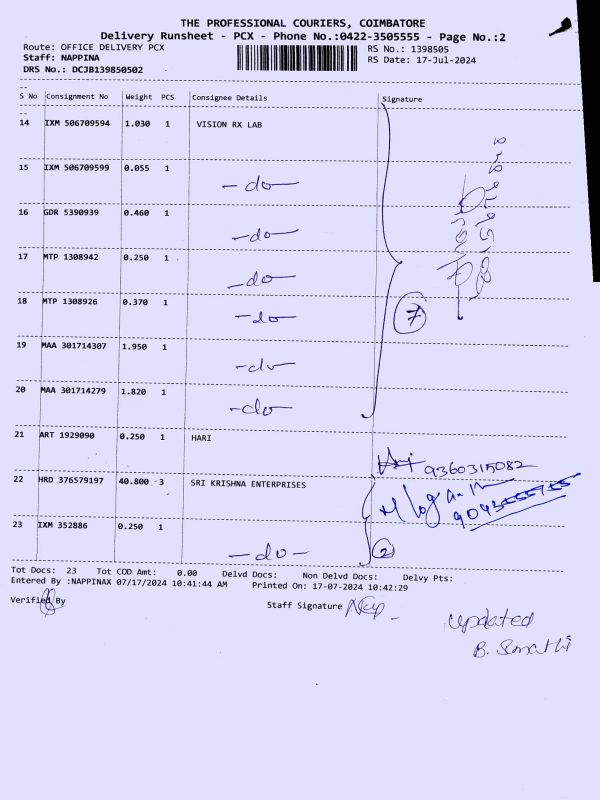 THE PROFESSIONAL COURIERS, COIMBATORE
Delivery Runsheet - PCX - Phone No.:0422-3505555 - Page No.:2
Route: OFFICE DELIVERY PCX
RS No.: 1398505
Staff: NAPPINA
RS Date: 17-Jul-2024
DRS No.: DCJB139850502
S No Consignment No Weight PCS Consignee Details Signature
14 IXM 506709594 1.030 1 VISION RX LAB
15 IXM 506709599 0.055 1 -do-
16 GDR 5390939 0.460 1 -do-
17 MTP 1308942 0.250 1 -do-
18 MTP 1308926 0.370 1 -do- 7
19 MAA 301714307 1.950 1 -do-
20 MAA 301714279 1.820 1 -do-
21 ART 1929090 0.250 1 HARI
Hari 9360315082
22 HRD 376579197 40.800 3 SRI KRISHNA ENTERPRISES
23 IXM 352886 0.250 1 -do- 2
Tot Docs: 23 Tot COD Amt: 0.00 Delvd Docs: Non Delvd Docs: Delvy Pts:
Entered By :NAPPINAX 07/17/2024 10:41:44 AM Printed On: 17-07-2024 10:42:29
Verified By
Staff Signature
updated